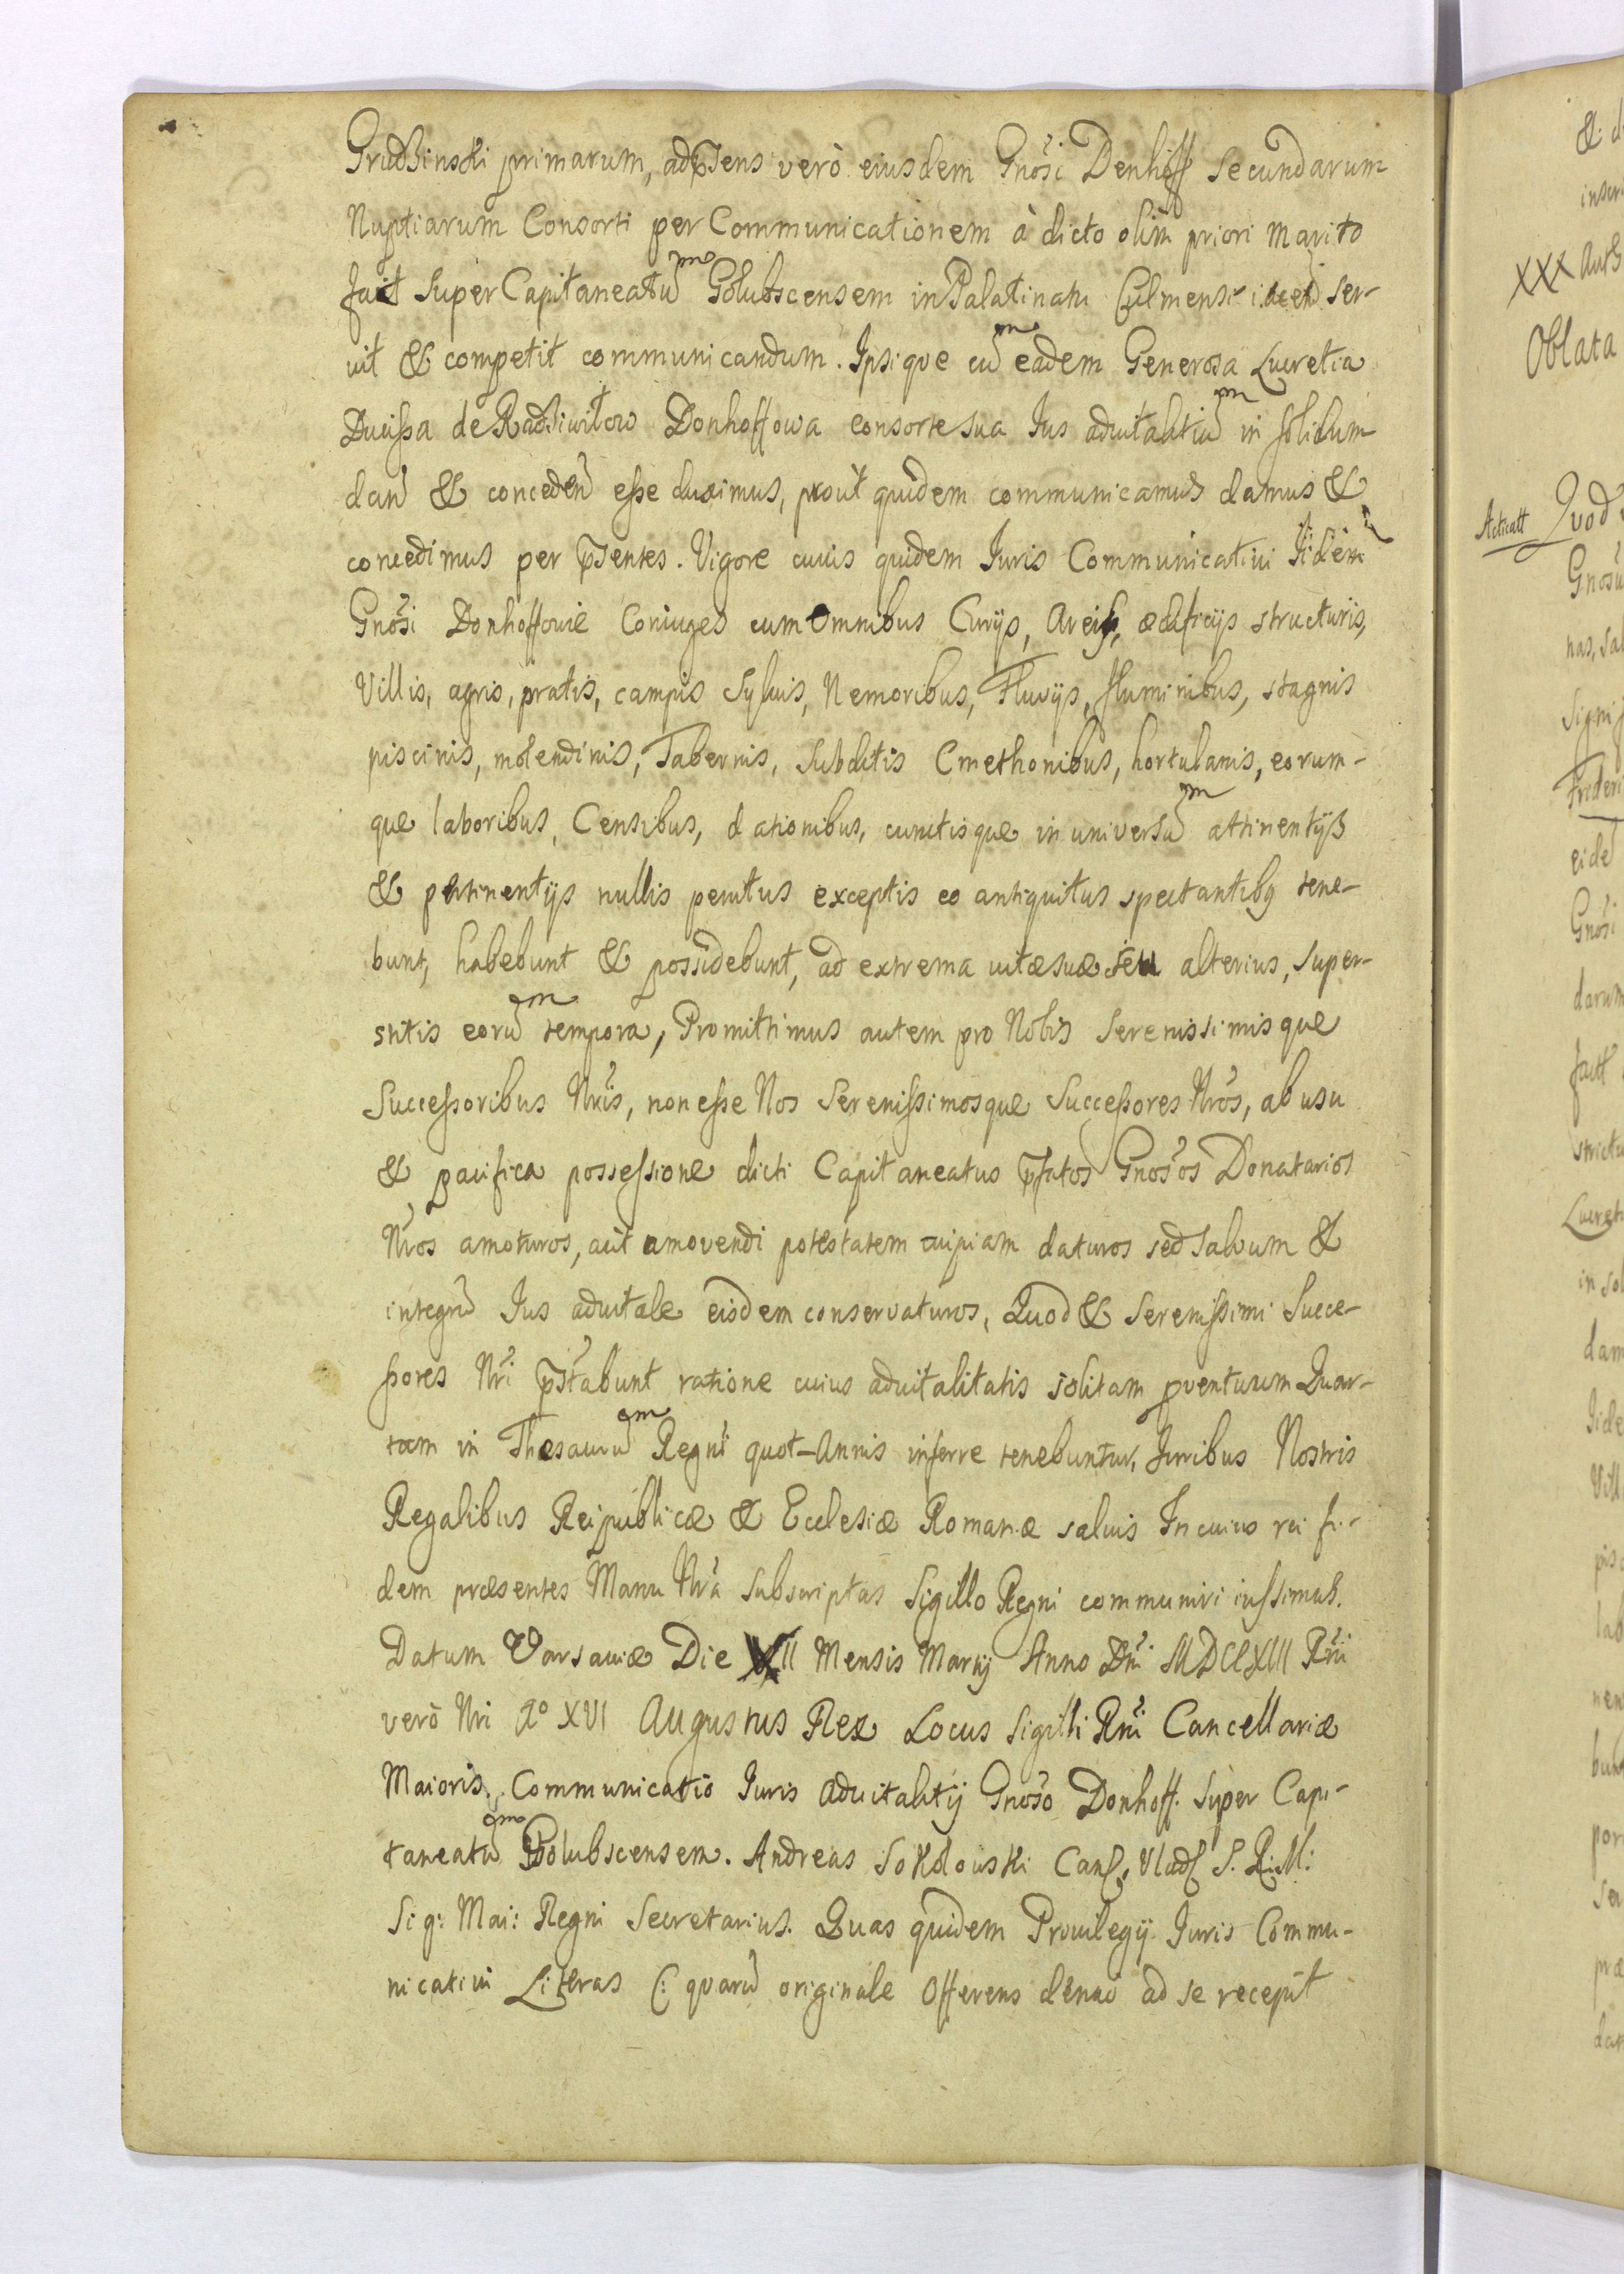 Grudzinski primarum, adpsens verò eiusdem Gnosi Denhoff secundarum
Nuptiarum Consorti per Communicationem à dicto olim priori Marito
fact super Capitaneatum Golubscensem in Palatinatu Culmensi iacen ser-
vit & competit communicandum. Ipsique cum eadem Generosa Lucretia
Ducissa de Radziwiłow Donhoffowa consorte sua Ius aduitalitium in solidum
dan & conceden esse duximus, prout quidem communicamus damus &
concedimus per psentes. Vigore cuius quidem Iuris Communicatiui Iidem
Gnosi Donhoffowie Coniuges cum Omnibus Curijs, Areis, ædificijs structuris,
Villis, agris, pratis, campis Syluis, Nemoribus, Fluvijs, fluminibus, stagnis
piscinis, molendinis, Tabernis, Subditis Cmethonibus, hortulanis, eorum-
que laboribus, Censibus, dationibus, cunctisque in universum attinentijs
& pertinentijs nullis penitus exceptis eo antiquitus spectantibq tene-
bunt, habebunt & possidebunt, ad extrema uitæ suæ seu alterius, super-
stitis eorum tempora, Promittimus autem pro Nobis Serenissimisque
Successoribus Nris, non esse Nos Serenissimosque Successores Nros, ab usu
& pacifica possessione dicti Capitaneatus pfatos Gnosos Donatarios
Nros amoturos, aut amovendi potestatem cuipiam daturos sed salvum &
integru Ius aduitale eisdem conservaturos, Quod & Serenissimi Succe-
ssores Nri pstabunt ratione cuius aduitalitatis solitam pventuum Quar-
tam in Thesaurum Regni quot-Annis inferre tenebuntur, Iuribus Nostris
Regalibus Reipublicæ & Ecclesiæ Romanæ saluis In cuius rei fi-
dem præsentes Manu Nra subscriptas Sigillo Regni communiri iussimus.
Datum Varsaviæ Die XII Mensis Martij Anno Dni MDCLXIII Rni
verò Nri Ao XVI Augustus Rex Locus Sigilli Rni Cancellariæ
Maioris. Communicatio Iuris Aduitalitij Gnoso Donhoff. Super Capi-
taneatum Golubscensem. Andreas Sokolouski Canc, Vlad S. R. M:
Sig: Mai: Regni Secretarius. Quas quidem Priuilegij Iuris Commu-
nicatiui Literas (: quaru originale Offerens denuo ad se recepit
Acticatt
Oblata
XXX
Quod